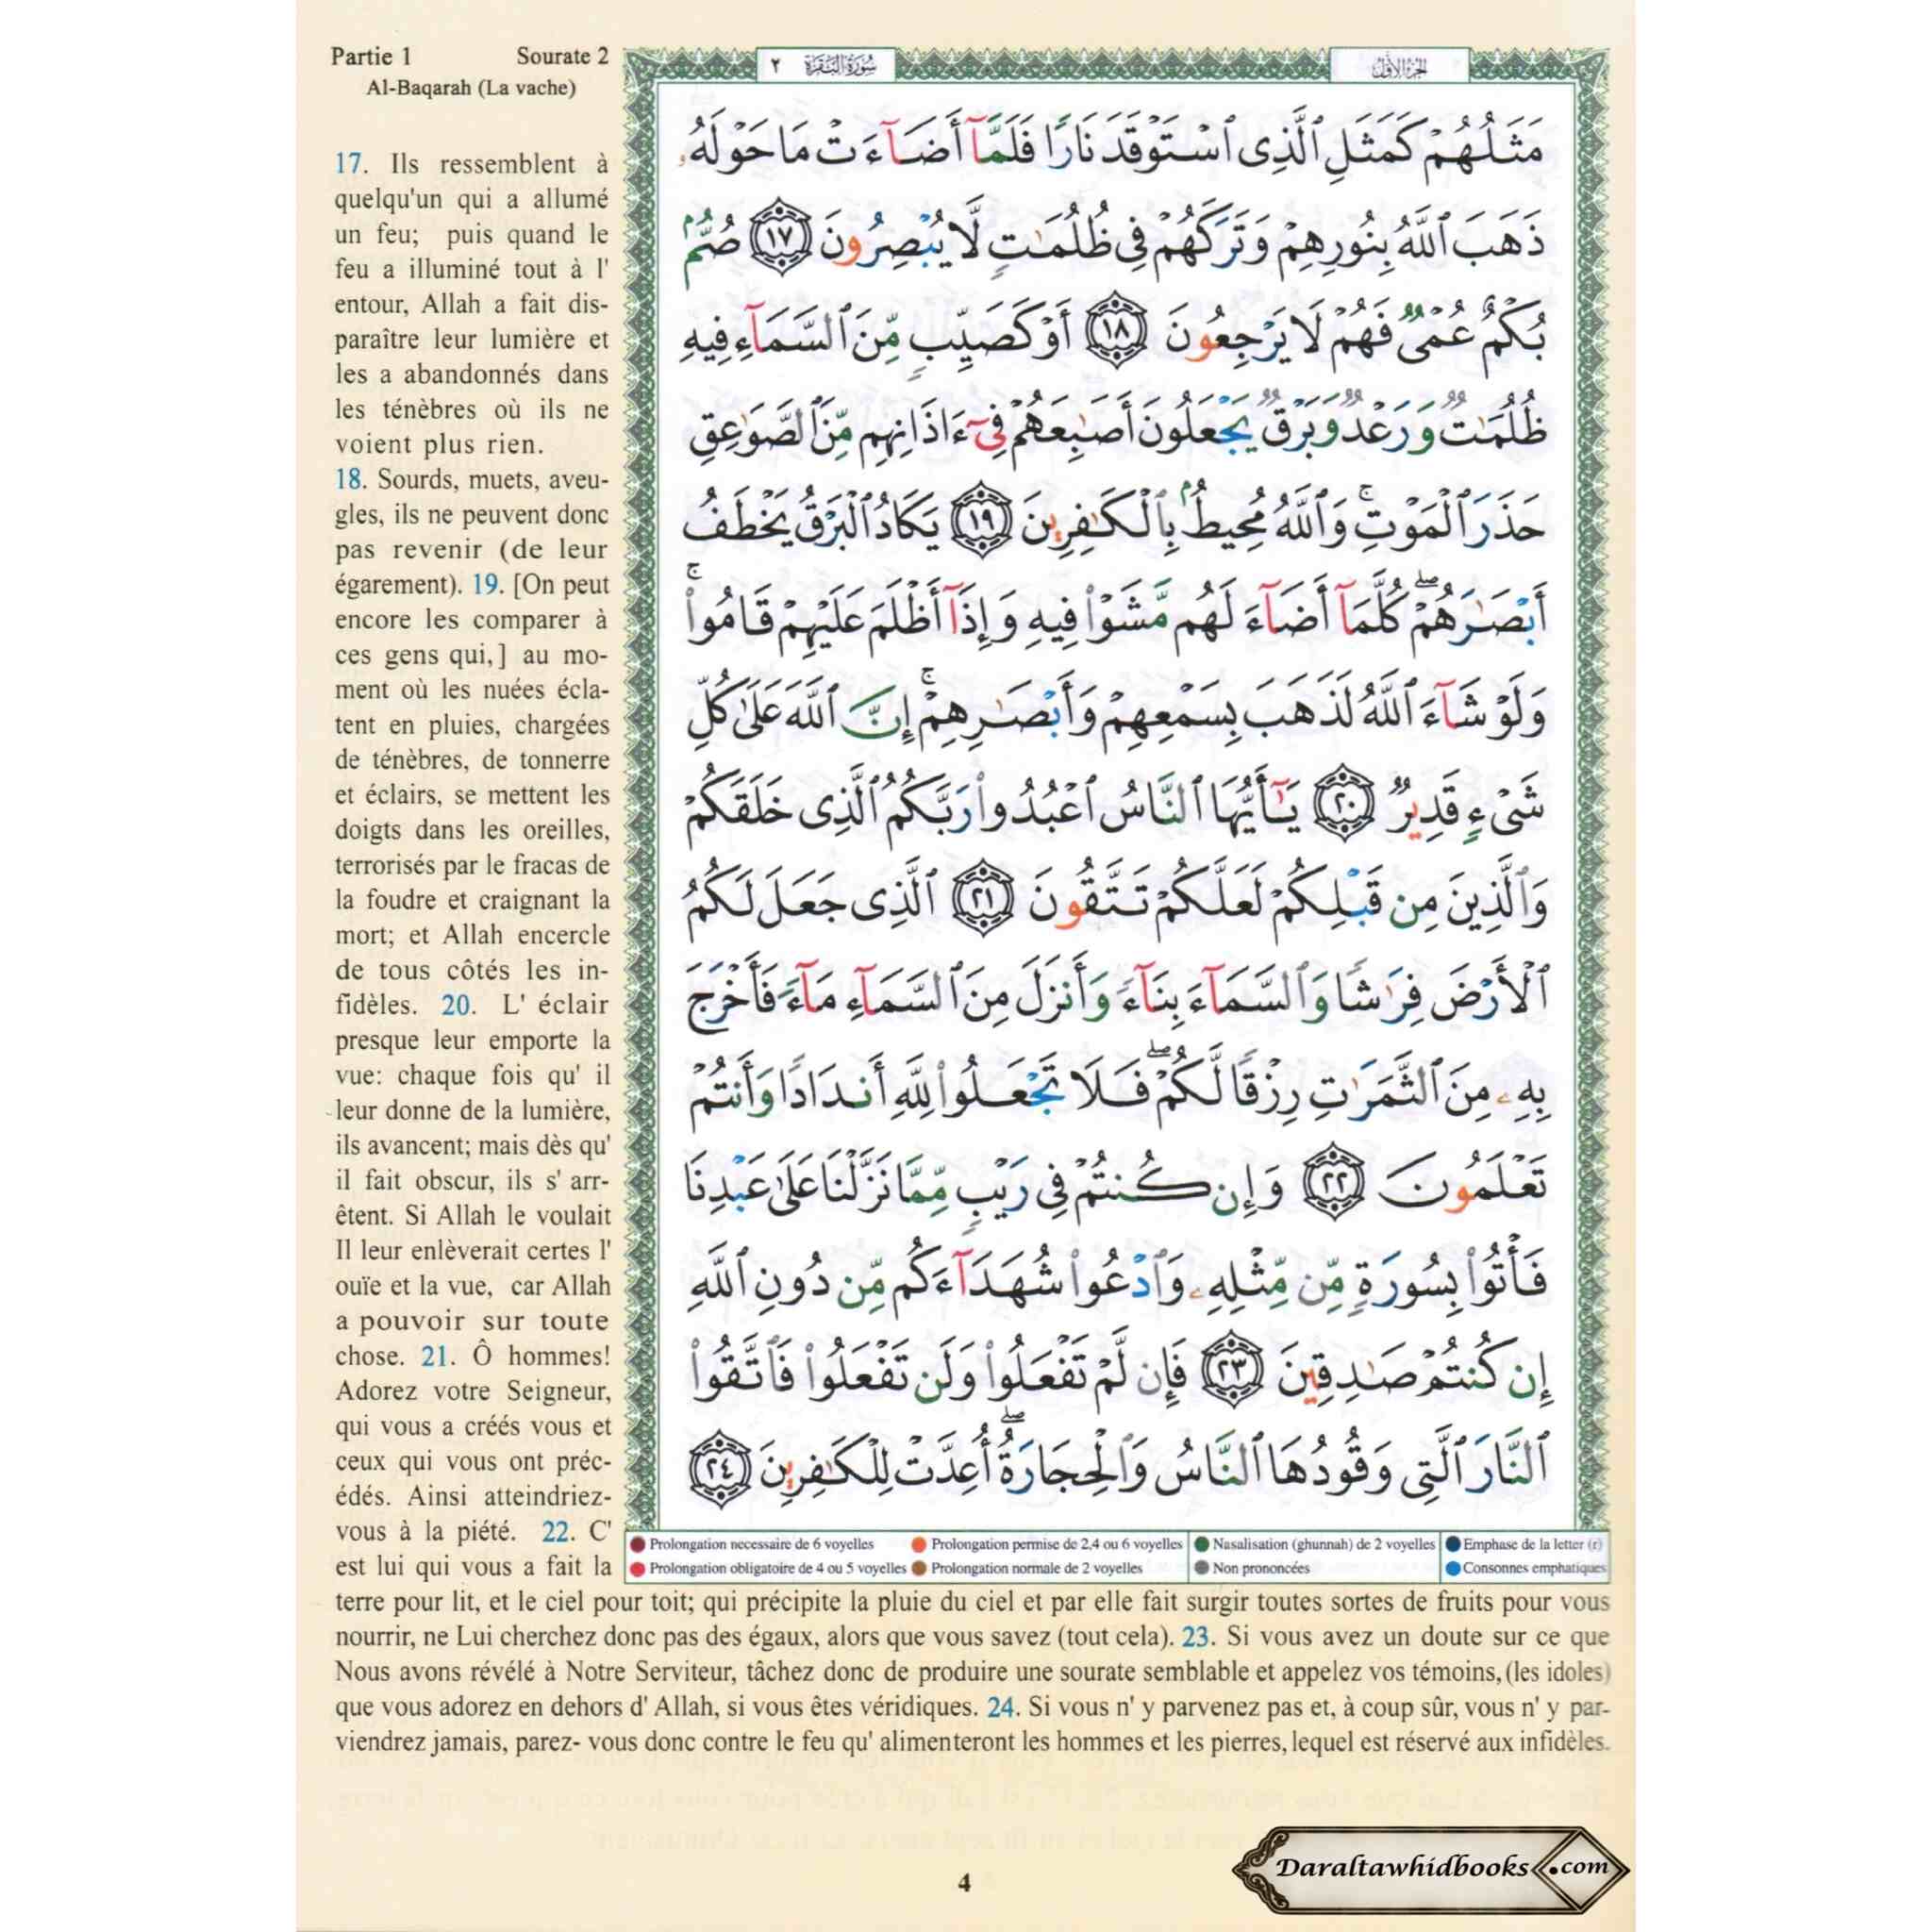 Partie 1 Sourate 2
Al-Baqarah (La vache)
سُورَةُ البَقَرَةِ ٢
الجزء الأول
مَثَلُهُمْ كَمَثَلِ ٱلَّذِى ٱسْتَوْقَدَ نَارًا فَلَمَّآ أَضَآءَتْ مَا حَوْلَهُۥ
ذَهَبَ ٱللَّهُ بِنُورِهِمْ وَتَرَكَهُمْ فِى ظُلُمَٰتٍ لَّا يُبْصِرُونَ ١٧ صُمٌّۢ
بُكْمٌ عُمْىٌ فَهُمْ لَا يَرْجِعُونَ ١٨ أَوْ كَصَيِّبٍ مِّنَ ٱلسَّمَآءِ فِيهِ
ظُلُمَٰتٌ وَرَعْدٌ وَبَرْقٌ يَجْعَلُونَ أَصَٰبِعَهُمْ فِىٓ ءَاذَانِهِم مِّنَ ٱلصَّوَٰعِقِ
حَذَرَ ٱلْمَوْتِ ۚ وَٱللَّهُ مُحِيطٌۢ بِٱلْكَٰفِرِينَ ١٩ يَكَادُ ٱلْبَرْقُ يَخْطَفُ
أَبْصَٰرَهُمْ ۖ كُلَّمَآ أَضَآءَ لَهُم مَّشَوْا۟ فِيهِ وَإِذَآ أَظْلَمَ عَلَيْهِمْ قَامُوا۟ ۚ
وَلَوْ شَآءَ ٱللَّهُ لَذَهَبَ بِسَمْعِهِمْ وَأَبْصَٰرِهِمْ ۚ إِنَّ ٱللَّهَ عَلَىٰ كُلِّ
شَىْءٍ قَدِيرٌ ٢٠ يَٰٓأَيُّهَا ٱلنَّاسُ ٱعْبُدُوا۟ رَبَّكُمُ ٱلَّذِى خَلَقَكُمْ
وَٱلَّذِينَ مِن قَبْلِكُمْ لَعَلَّكُمْ تَتَّقُونَ ٢١ ٱلَّذِى جَعَلَ لَكُمُ
ٱلْأَرْضَ فِرَٰشًا وَٱلسَّمَآءَ بِنَآءً وَأَنزَلَ مِنَ ٱلسَّمَآءِ مَآءً فَأَخْرَجَ
بِهِۦ مِنَ ٱلثَّمَرَٰتِ رِزْقًا لَّكُمْ ۖ فَلَا تَجْعَلُوا۟ لِلَّهِ أَندَادًا وَأَنتُمْ
تَعْلَمُونَ ٢٢ وَإِن كُنتُمْ فِى رَيْبٍ مِّمَّا نَزَّلْنَا عَلَىٰ عَبْدِنَا
فَأْتُوا۟ بِسُورَةٍ مِّن مِّثْلِهِۦ وَٱدْعُوا۟ شُهَدَآءَكُم مِّن دُونِ ٱللَّهِ
إِن كُنتُمْ صَٰدِقِينَ ٢٣ فَإِن لَّمْ تَفْعَلُوا۟ وَلَن تَفْعَلُوا۟ فَٱتَّقُوا۟
ٱلنَّارَ ٱلَّتِى وَقُودُهَا ٱلنَّاسُ وَٱلْحِجَارَةُ ۖ أُعِدَّتْ لِلْكَٰفِرِينَ ٢٤
17. Ils ressemblent à
quelqu'un qui a allumé
un feu; puis quand le
feu a illuminé tout à l'
entour, Allah a fait dis-
paraître leur lumière et
les a abandonnés dans
les ténèbres où ils ne
voient plus rien.
18. Sourds, muets, aveu-
gles, ils ne peuvent donc
pas revenir (de leur
égarement). 19. [On peut
encore les comparer à
ces gens qui,] au mo-
ment où les nuées écla-
tent en pluies, chargées
de ténèbres, de tonnerre
et éclairs, se mettent les
doigts dans les oreilles,
terrorisés par le fracas de
la foudre et craignant la
mort; et Allah encercle
de tous côtés les in-
fidèles. 20. L' éclair
presque leur emporte la
vue: chaque fois qu' il
leur donne de la lumière,
ils avancent; mais dès qu'
il fait obscur, ils s' arr-
êtent. Si Allah le voulait
Il leur enlèverait certes l'
ouïe et la vue, car Allah
a pouvoir sur toute
chose. 21. Ô hommes!
Adorez votre Seigneur,
qui vous a créés vous et
ceux qui vous ont préc-
édés. Ainsi atteindriez-
vous à la piété. 22. C'
est lui qui vous a fait la
Prolongation necessaire de 6 voyelles Prolongation permise de 2,4 ou 6 voyelles Nasalisation (ghunnah) de 2 voyelles Emphase de la letter (r)
Prolongation obligatoire de 4 ou 5 voyelles Prolongation normale de 2 voyelles Non prononcées Consonnes emphatiques
terre pour lit, et le ciel pour toit; qui précipite la pluie du ciel et par elle fait surgir toutes sortes de fruits pour vous
nourrir, ne Lui cherchez donc pas des égaux, alors que vous savez (tout cela). 23. Si vous avez un doute sur ce que
Nous avons révélé à Notre Serviteur, tâchez donc de produire une sourate semblable et appelez vos témoins, (les idoles)
que vous adorez en dehors d' Allah, si vous êtes véridiques. 24. Si vous n' y parvenez pas et, à coup sûr, vous n' y par-
viendrez jamais, parez- vous donc contre le feu qu' alimenteront les hommes et les pierres, lequel est réservé aux infidèles.
4
Daraltawhidbooks.com